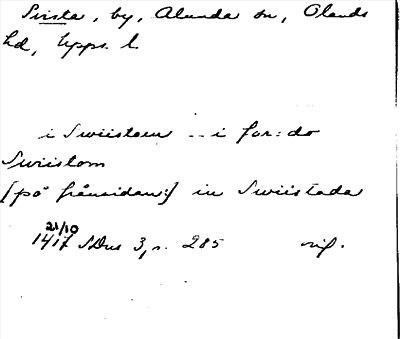 Svista, by, Alunda sn, Olands
hd, Upps. l.
i Swiistom -- i for:do
Swiistom
[på frånsidan:] in Swiistada
21/10
1417 SDns 3, s. 285 orig.